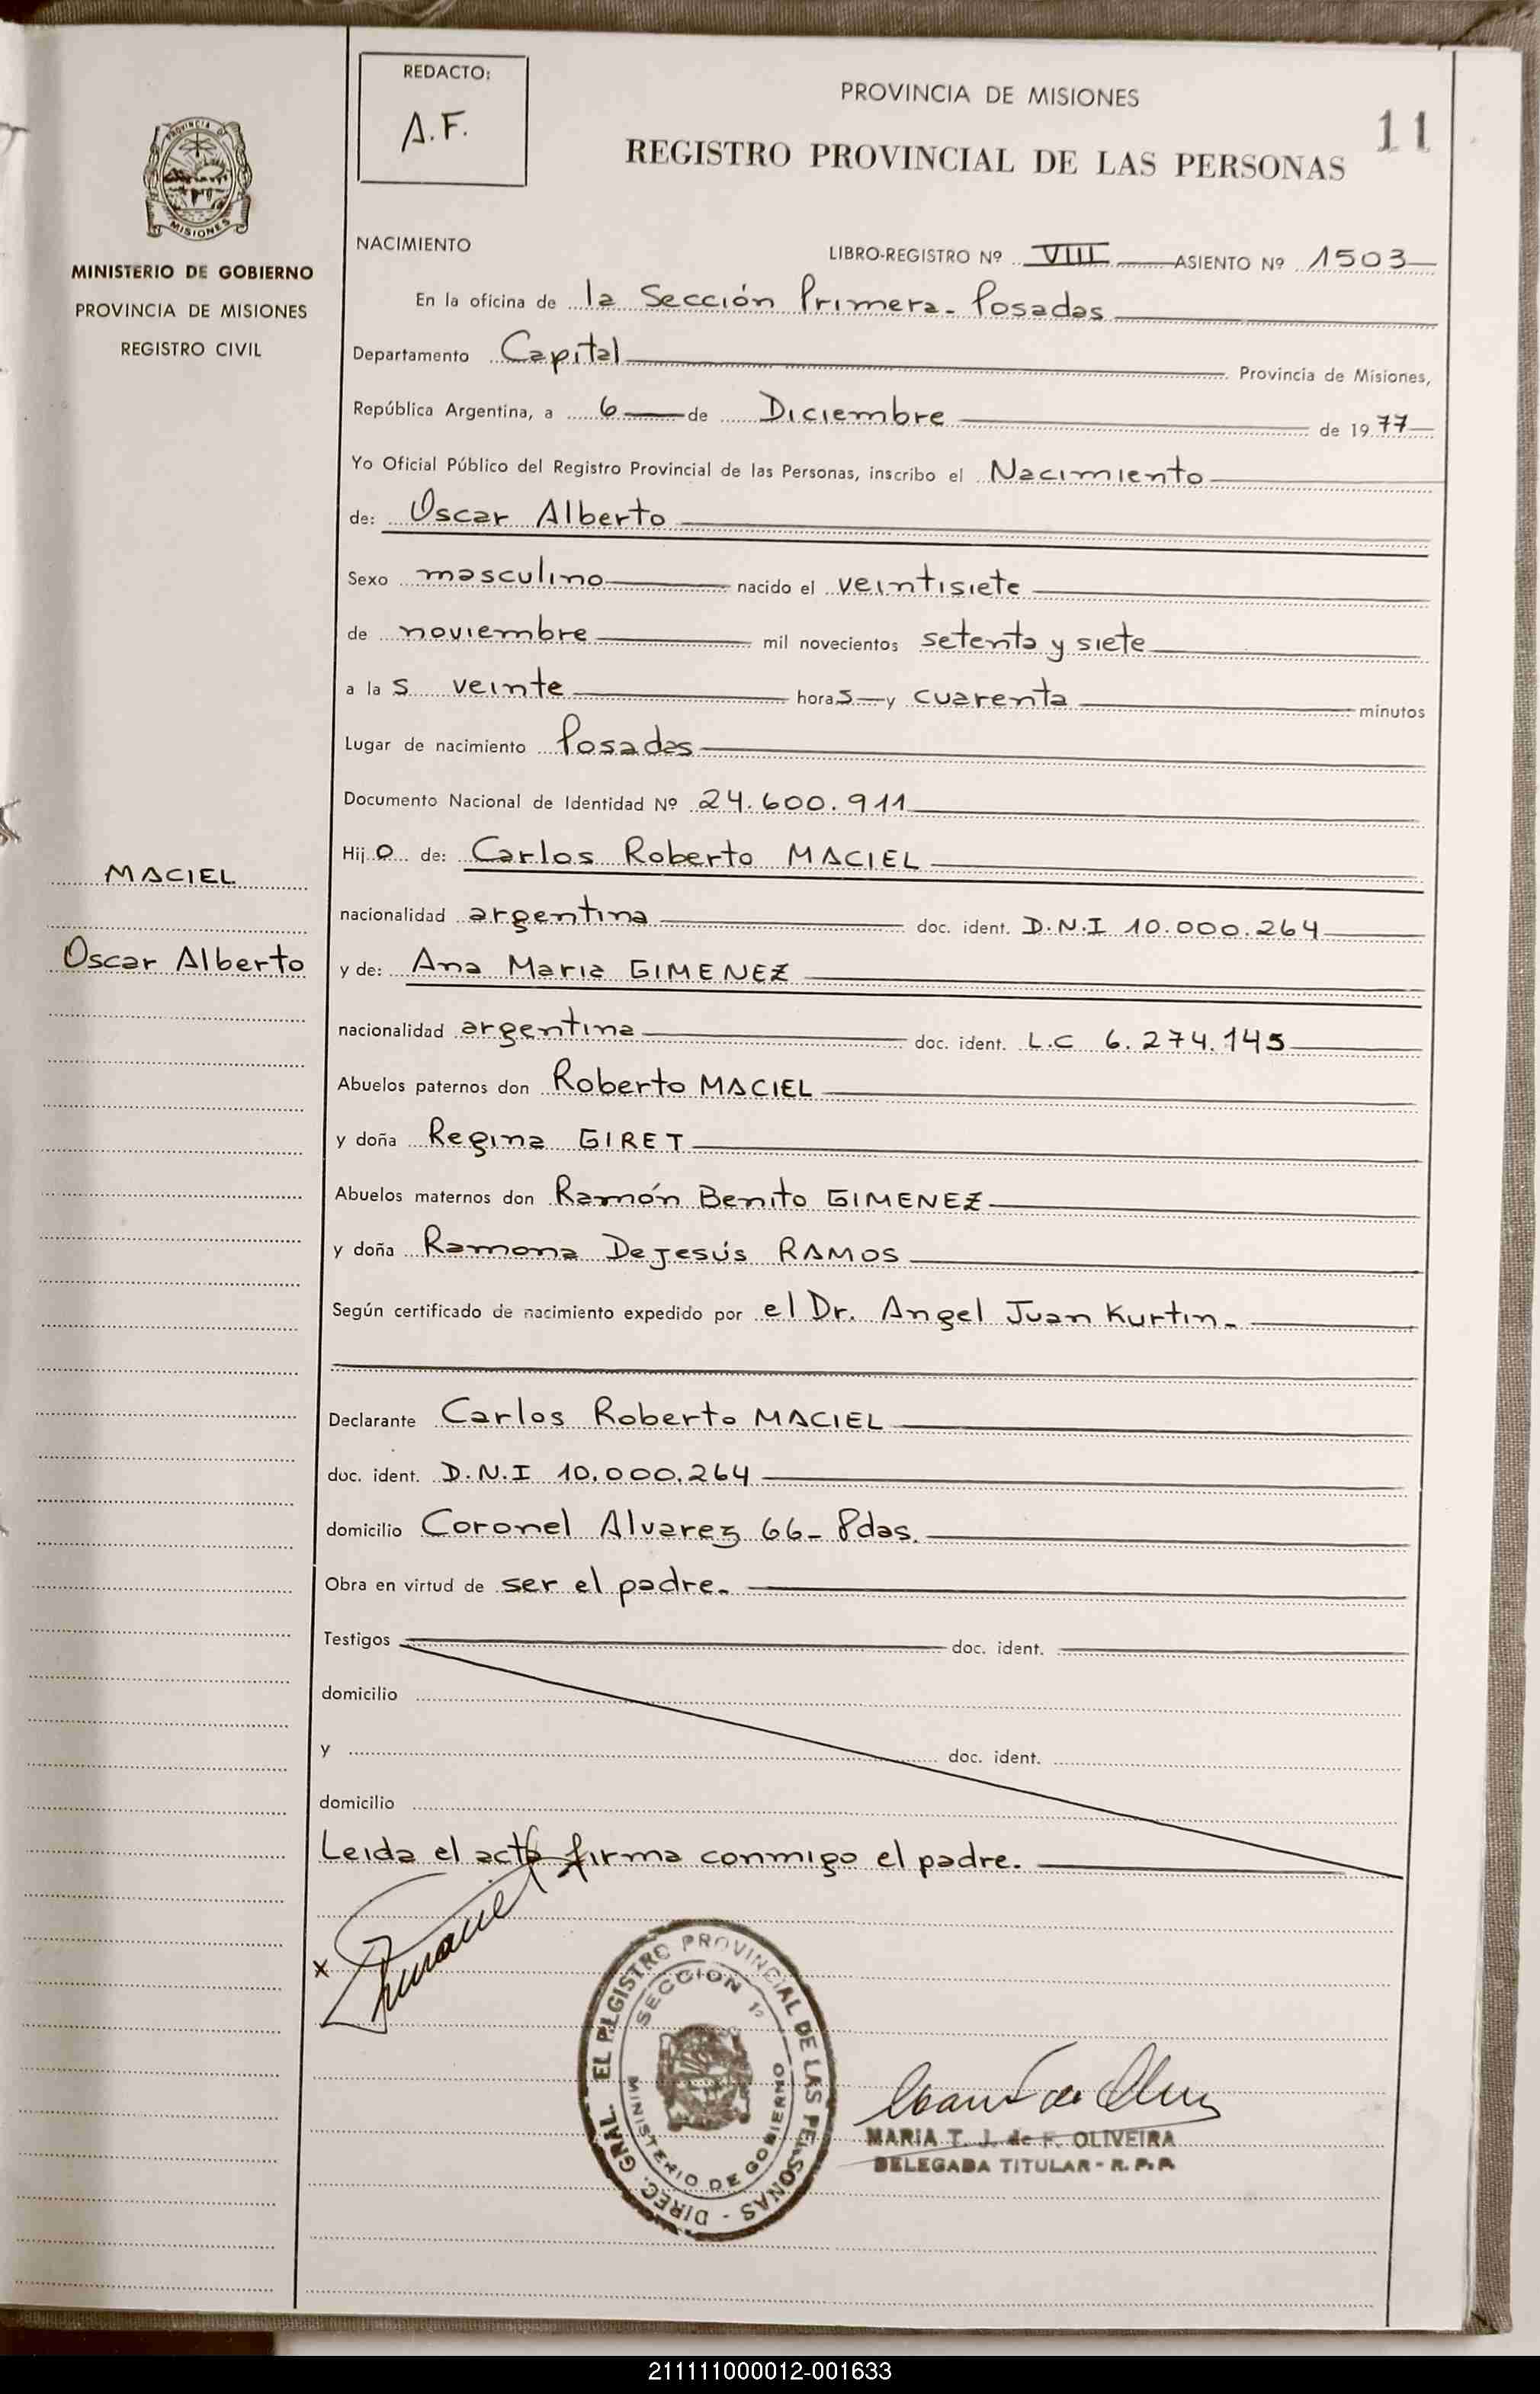 REDACTO:
A.F.
PROVINCIA DE MISIONES
11
REGISTRO PROVINCIAL DE LAS PERSONAS
PROVINCIA DE
MISIONES
MINISTERIO DE GOBIERNO
PROVINCIA DE MISIONES
REGISTRO CIVIL
NACIMIENTO
LIBRO-REGISTRO Nº VIII ASIENTO Nº 1503
En la oficina de la Sección Primera - Posadas
Departamento Capital Provincia de Misiones,
República Argentina, a 6 de Diciembre de 1977
Yo Oficial Público del Registro Provincial de las Personas, inscribo el Nacimiento
de: Oscar Alberto
Sexo masculino nacido el veintisiete
de noviembre mil novecientos setenta y siete
a las veinte horas y cuarenta minutos
Lugar de nacimiento Posadas
Documento Nacional de Identidad Nº 24.600.911
Hijo de: Carlos Roberto MACIEL
MACIEL
nacionalidad argentina doc. ident. D.N.I 10.000.264
Oscar Alberto
y de: Ana Maria GIMENEZ
nacionalidad argentina doc. ident. L.C 6.274.145
Abuelos paternos don Roberto MACIEL
y doña Regina GIRET
Abuelos maternos don Ramón Benito GIMENEZ
y doña Ramona De Jesús RAMOS
Según certificado de nacimiento expedido por el Dr. Angel Juan Kurtin.
Declarante Carlos Roberto MACIEL
doc. ident. D.N.I 10.000.264
domicilio Coronel Alvarez 66 - Pdas.
Obra en virtud de ser el padre.
Testigos doc. ident.
domicilio
y doc. ident.
domicilio
Leida el acta firma conmigo el padre.
x
DIREC. GRAL. EL REGISTRO PROVINCIAL DE LAS PERSONAS -
SECCION 1ª
MINISTERIO DE GOBIERNO
MARIA T. J. de F. OLIVEIRA
DELEGADA TITULAR - R.P.P.
211111000012-001633